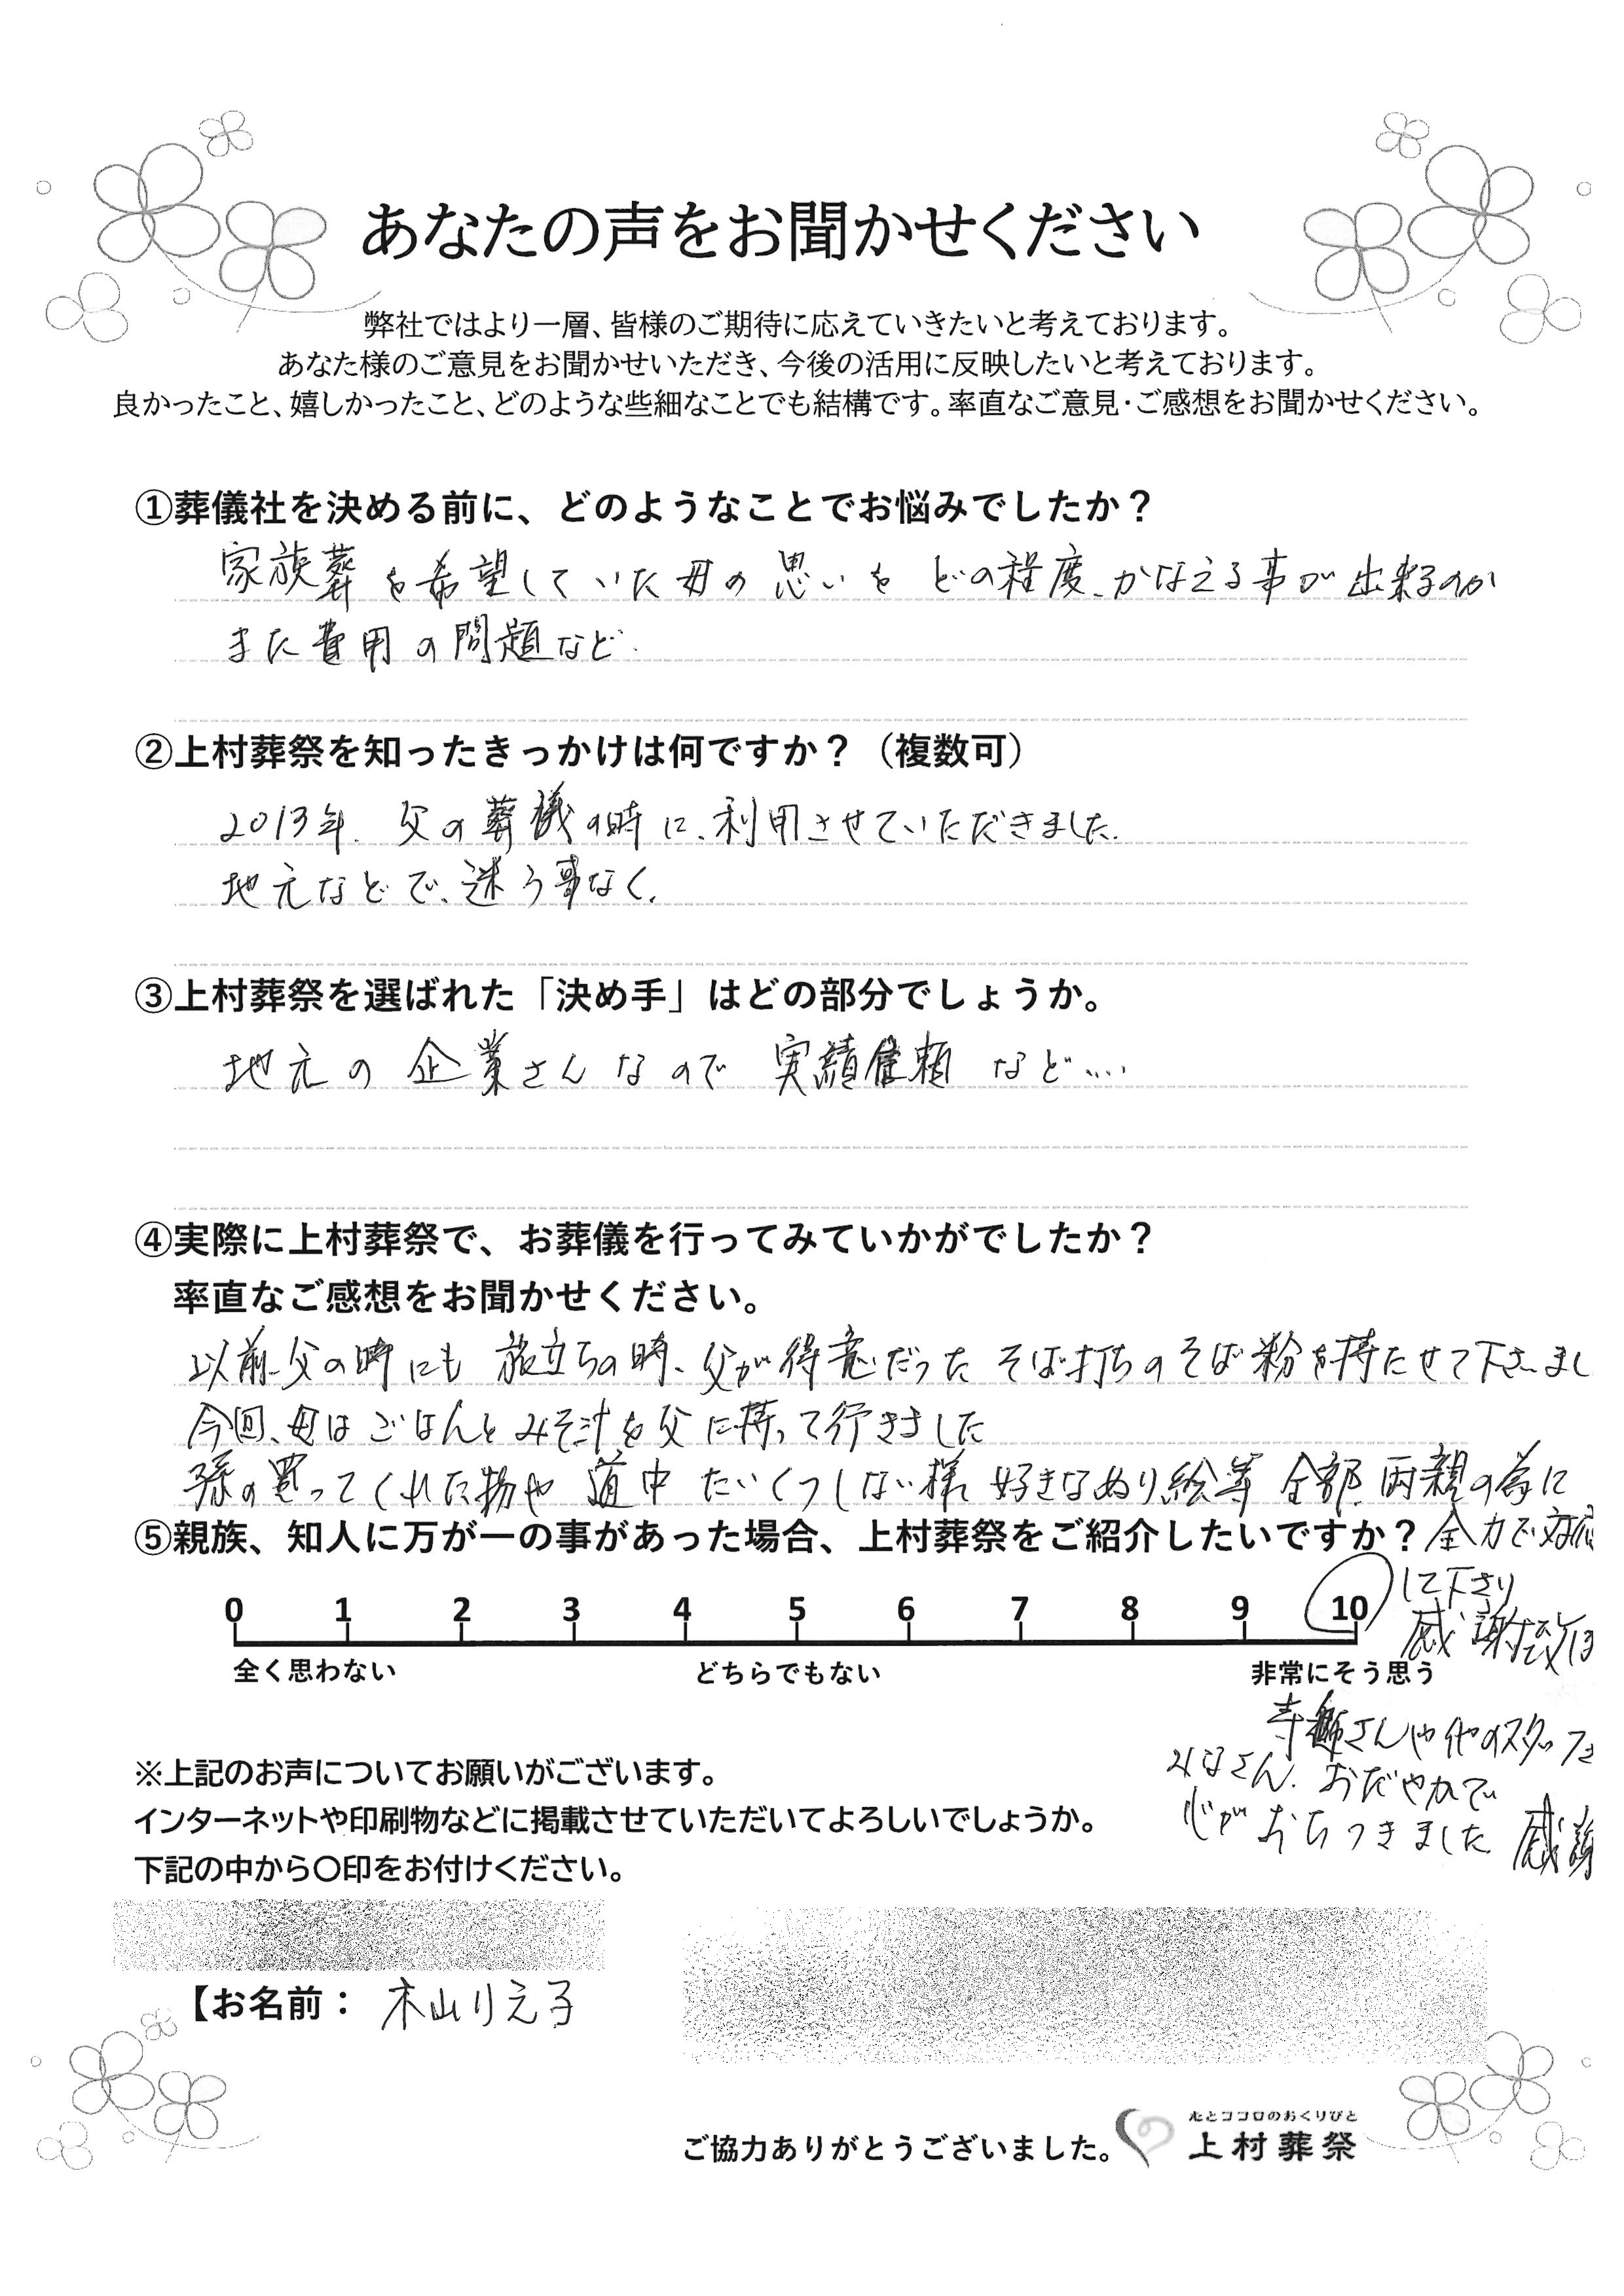 あなたの声をお聞かせください
弊社ではより一層、皆様のご期待に応えていきたいと考えております。
あなた様のご意見をお聞かせいただき、今後の活用に反映したいと考えております。
良かったこと、嬉しかったこと、どのような些細なことでも結構です。率直なご意見・ご感想をお聞かせください。
①葬儀社を決める前に、どのようなことでお悩みでしたか？
家族葬を希望していた母の思いをどの程度、かなえる事が出来るのか
また費用の問題など.
②上村葬祭を知ったきっかけは何ですか？（複数可）
2013年、父の葬儀の時に、利用させていただきました.
地元などで、迷う事なく.
③上村葬祭を選ばれた「決め手」はどの部分でしょうか。
地元の企業さんなので 実績信頼 など……
④実際に上村葬祭で、お葬儀を行ってみていかがでしたか？
率直なご感想をお聞かせください。
以前、父の時にも 旅立ちの時、父が得意だった そば打ちのそば粉を持たせて下さいまし
今回、母は ごはんとみそ汁を父に持って行きました
孫の買ってくれた物や 道中 たいくつしない様 好きなぬり絵等 全部、両親の為に
⑤親族、知人に万が一の事があった場合、上村葬祭をご紹介したいですか？
全力で対応
して下さり
感謝
0 1 2 3 4 5 6 7 8 9 10
全く思わない どちらでもない 非常にそう思う
さんや他のスタッフさ
みなさん、おだやかで
心がおちつきました 感謝
※上記のお声についてお願いがございます。
インターネットや印刷物などに掲載させていただいてよろしいでしょうか。
下記の中から〇印をお付けください。
【お名前： 木山りえ子
ご協力ありがとうございました。
心とココロのおくりびと
上村葬祭